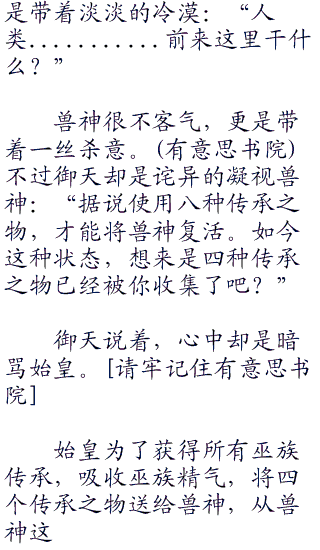 是带着淡淡的冷漠：“人
类...........前来这里干什
么？”
兽神很不客气，更是带
着一丝杀意。(有意思书院)
不过御天却是诧异的凝视兽
神：“据说使用八种传承之
物，才能将兽神复活。如今
这种状态，想来是四种传承
之物已经被你收集了吧？”
御天说着，心中却是暗
骂始皇。[请牢记住有意思书
院]
始皇为了获得所有巫族
传承，吸收巫族精气，将四
个传承之物送给兽神，从兽
神这